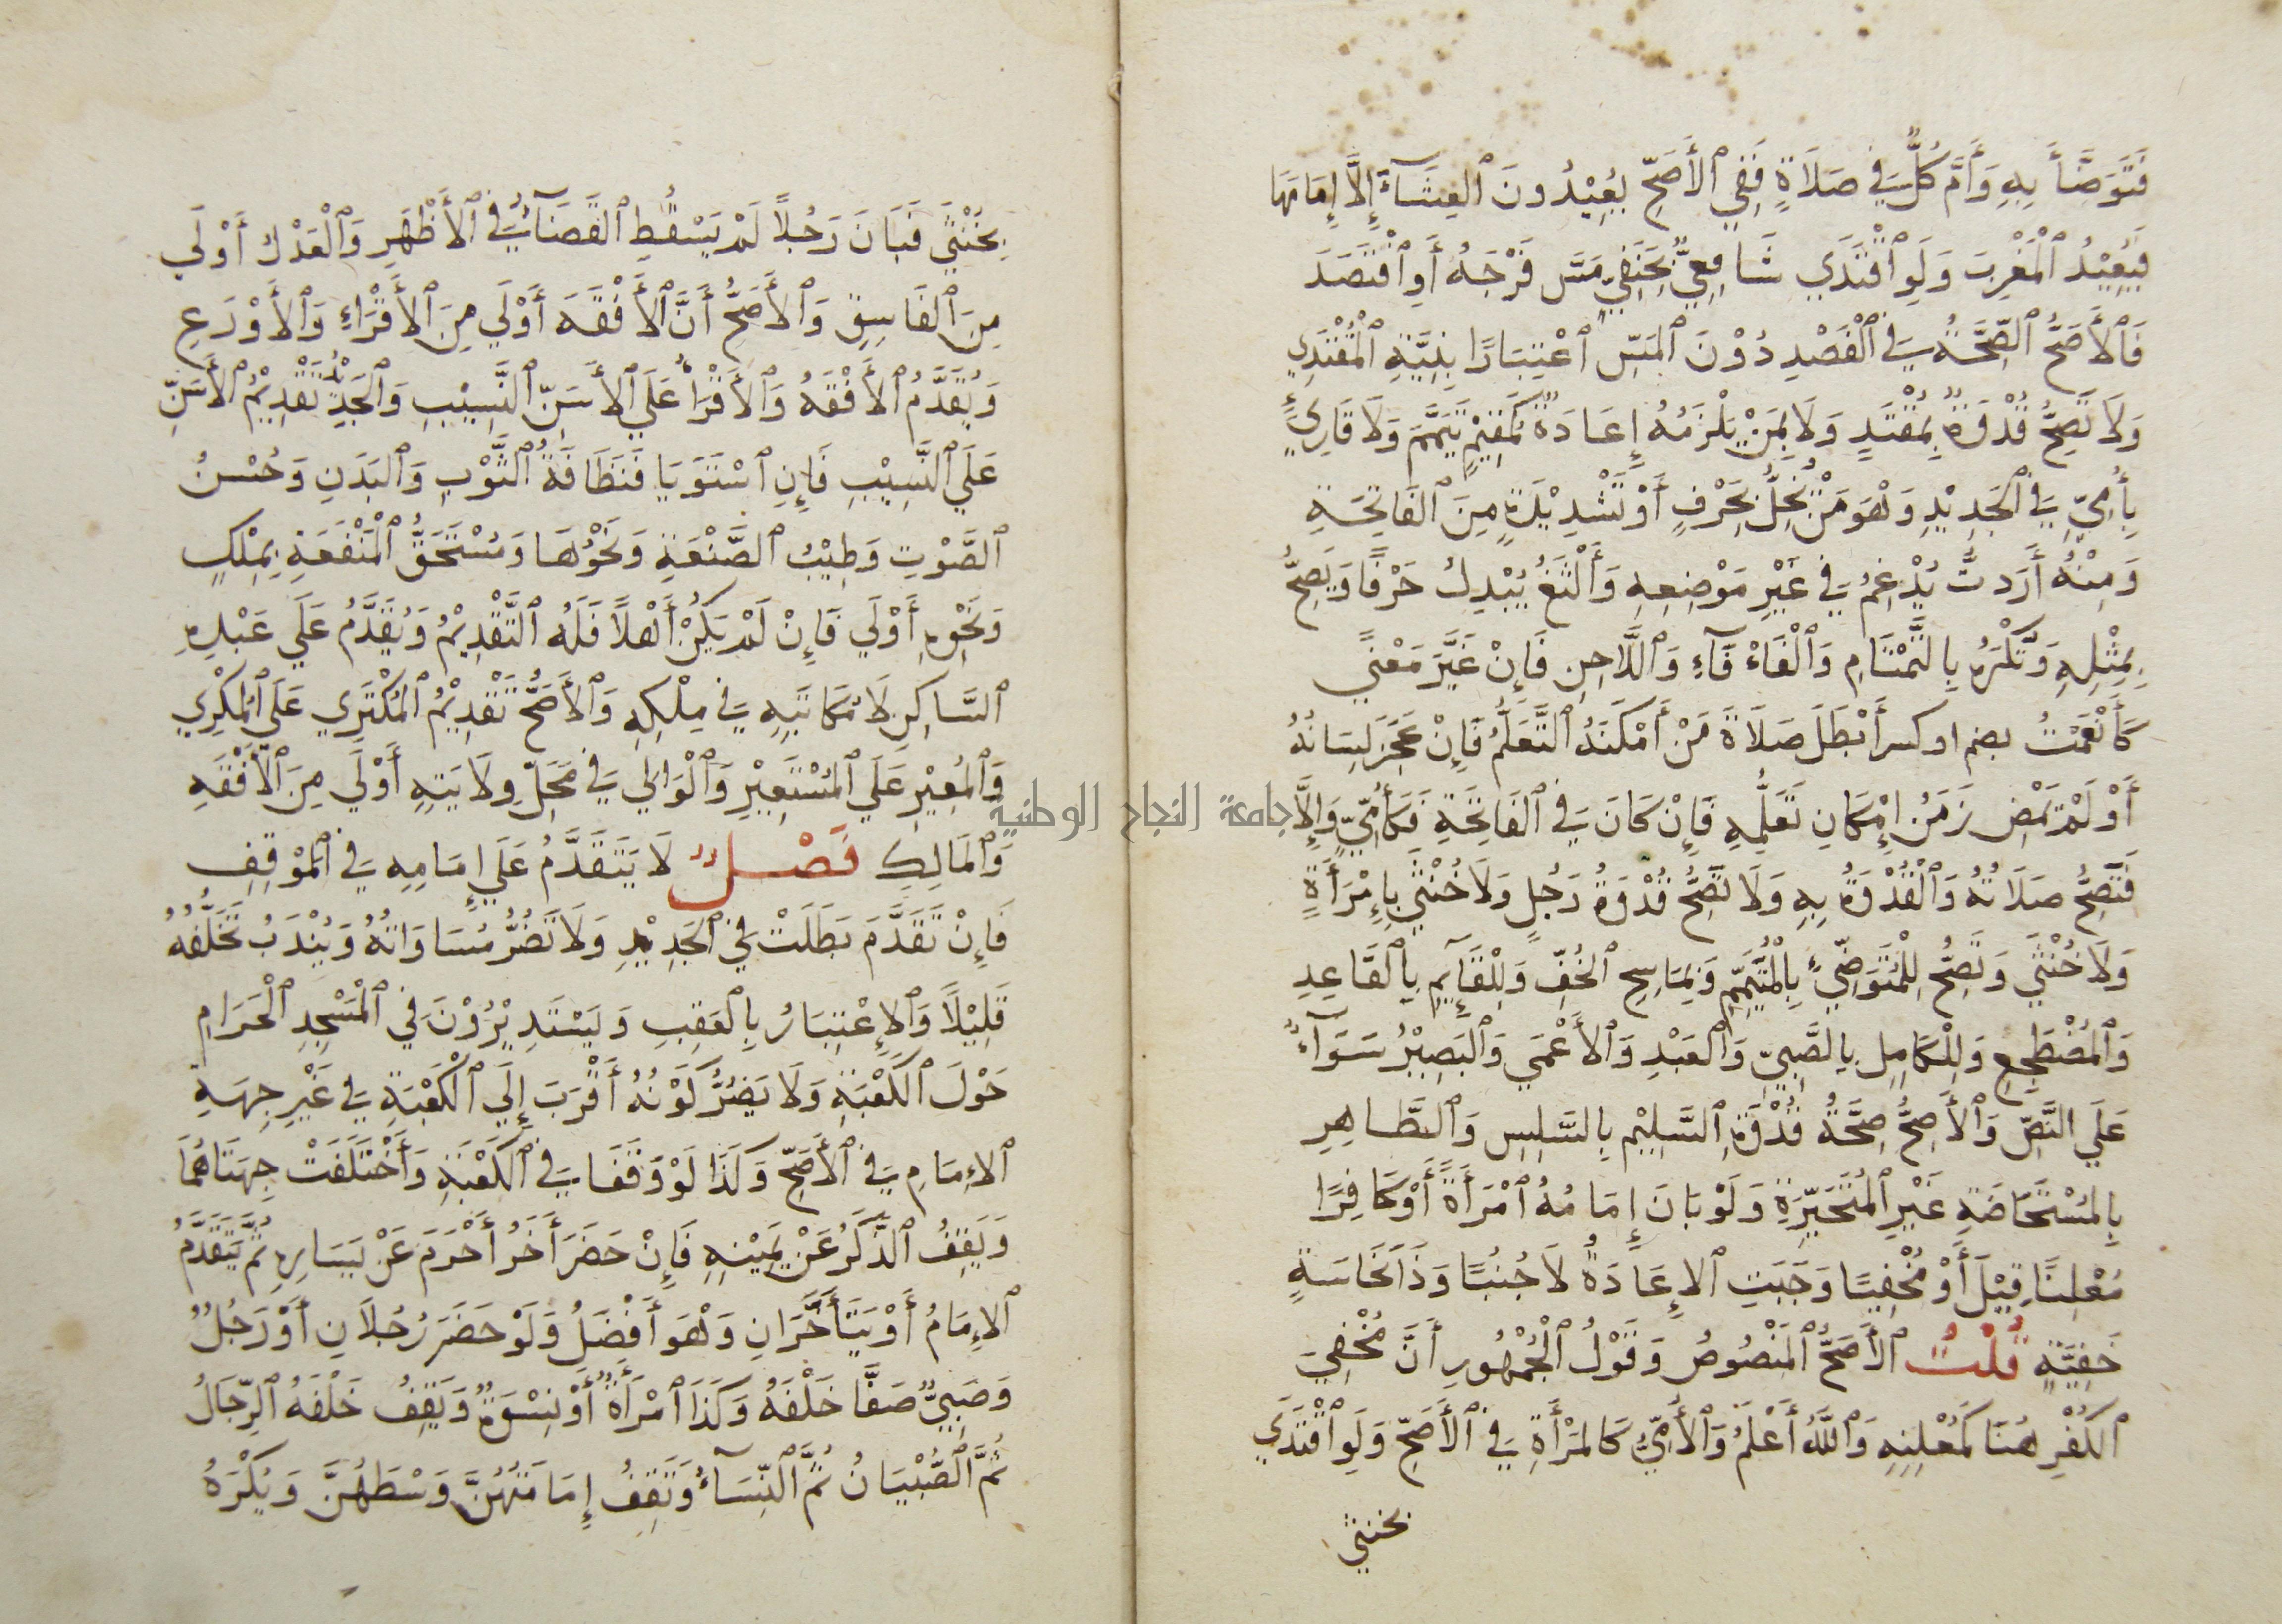 فَتَوَضَّأَ بِهِ وَأَمَّ كُلٌّ فِي صَلَاةٍ فَفِي ٱلأَصَحِّ يُعِيْدُونَ ٱلعِشَآءَ إِلَّا إِمَامَهَا
فَيُعِيْدُ ٱلْمَغْرِبَ وَلَوِ ٱقْتَدَي شَافِعِيٌّ بِحَنَفِيٍّ مَسَّ فَرْجَهُ أَوِ ٱفْتَصَدَ
فَٱلأَصَحُّ ٱلصِّحَّةُ فِي ٱلْفَصْدِ دُوْنَ ٱلمَسِّ ٱعْتِبَارًا بِنِيَّةِ ٱلْمُقْتَدِي
وَلَا تَصِحُّ قُدْوَةٌ بِمُقْتَدٍ وَلَا بِمَنْ يَلْزَمُهُ إِعَادَةٌ كَمُقِيْمٍ تَيَمَّمَ وَلَا قَارِيٍ
بِأُمِّيٍّ فِي ٱلجَدِيْدِ وَهْوَ مَنْ يُخِلُّ بِحَرْفٍ أَوْ تَشْدِيْدَةٍ مِنَ ٱلفَاتِحَةِ
وَمِنْهُ أَرَتُّ يُدْغِمُ فِي غَيْرِ مَوْضِعِهِ وَأَلْثَغُ يُبْدِلُ حَرْفًا وَيَصِحُّ
بِمِثْلِهِ وَتُكْرَهُ بِالتَّمْتَامِ وَٱلْفَاْفَآءِ وَٱللَّاحِنِ فَإِنْ غَيَّرَ مَعْنًي
كَأَنْعَمْتُ بضم اوكسر أَبْطَلَ صَلَاةَ مَنْ أَمْكَنَهُ ٱلتَّعَلُّمُ فَإِنْ عَجَزَ لِسَانُهُ
أَوْ لَمْ يَمْضِ زَمَنُ إِمْكَانِ تَعَلُّمِهِ فَإِنْ كَانَ فِي ٱلفَاتِحَةِ فَكَأُمِّيٍّ وَإِلَّا
فَتَصِحُّ صَلَاتُهُ وَٱلْقُدْوَةُ بِهِ وَلَا تَصِحُّ قُدْوَةُ رَجُلٍ وَلَا خُنْثَي بِإِمْرَأَةٍ
وَلَا خُنْثَي وَتَصِحُّ لِلْمُتَوَضِّيِّ بِالْمُتَيَمِّمِ وَبِمَاسِحِ ٱلخُفِّ وَلِلْقَآيِمِ بِٱلقَاعِدِ
وَٱلمُضْطَجِعِ وَلِلْكَامِلِ بِالصَّبِيِّ وَٱلعَبْدِ وَٱلأَعْمَي وَٱلبَصِيْرُ سَوَآءٌ
عَلَي النَّصِّ وَٱلأَصَحُّ صِحَّةُ قُدْوَةِ ٱلسَّلِيْمِ بِالسَّلِسِ وَٱلطَّاهِرِ
بِالمُسْتَحَاضَةِ غَيْرِ ٱلمُتَحَيِّرَةِ وَلَوْ بَانَ إِمَامُهُ ٱمْرَأَةً أَوْ كَافِرًا
مُعْلِنًا قِيْلَ أَوْ مُخْفِيًا وَجَبَتِ ٱلإِعَادَةُ لَا جُنُبًا وَذَا نَجَاسَةٍ
خَفِيَّةٍ قُلْتُ ٱلأَصَحُّ ٱلمَنْصُوصُ وَقَوْلُ ٱلْجُمْهُورِ أَنَّ مُخْفِيَ
ٱلكُفْرِ هُنَا كَمُعْلِنِهِ وَٱللَّهُ أَعْلَمُ وَٱلأُمِّيُّ كَالمَرْأَةِ فِي ٱلأَصَحِّ وَلَوِ ٱقْتَدَي
بخنثي
بِخُنْثَي فَبَانَ رَجُلًا لَمْ يَسْقُطِ ٱلقَضَآءُ فِي ٱلأَظْهَرِ وَٱلْعَدْلُ أَوْلَي
مِنَ ٱلفَاسِقِ وَٱلأَصَحُّ أَنَّ ٱلأَفْقَهَ أَوْلَي مِنَ ٱلأَقْرَاءِ وَٱلأَوْرَعِ
وَيُقَدَّمُ ٱلأَفْقَهُ وَٱلأَقْرَأُ عَلَي ٱلأَسَنِّ ٱلنَّسِيْبِ وَٱلجَدِيْدُ تَقْدِيْمُ ٱلأَسَنِّ
عَلَي ٱلنَّسِيْبِ فَإِنِ ٱسْتَوَيَا فَنَظَافَةُ ٱلثَّوْبِ وَٱلبَدَنِ وَحُسْنُ
ٱلصَّوْتِ وَطِيْبُ ٱلصَّنْعَةِ وَنَحْوُهَا وَمُسْتَحَقُّ ٱلْمَنْفَعَةِ بِمِلْكٍ
وَنَحْوِهِ أَوْلَي فَإِنْ لَمْ يَكُنْ أَهْلًا فَلَهُ ٱلتَّقْدِيْمُ وَيُقَدَّمُ عَلَي عَبْدِهِ
ٱلسَّاكِنِ لَا مُكَاتَبِهِ فِي مِلْكِهِ وَٱلأَصَحُّ تَقْدِيْمُ ٱلمُكْتَرِي عَلَي ٱلمُكْرِي
وَٱلمُعِيْرِ عَلَي ٱلمُسْتَعِيْرِ وَٱلْوَالِي فِي مَحَلِّ وِلَايَتِهِ أَوْلَي مِنَ ٱلأَفْقَهِ
وَٱلمَالِكِ فَصْلٌ لَا يَتَقَدَّمُ عَلَي إِمَامِهِ فِي ٱلمَوْقِفِ
فَإِنْ تَقَدَّمَ بَطَلَتْ فِي ٱلجَدِيْدِ وَلَا تَضُرُّ مُسَاوَاتُهُ وَيُنْدَبُ تَخَلُّفُهُ
قَلِيْلًا وَٱلإِعْتِبَارُ بِالعَقِبِ وَيَسْتَدِيْرُوْنَ فِي ٱلْمَسْجِدِ ٱلْحَرَامِ
حَوْلَ ٱلكَعْبَةِ وَلَا يَضُرُّ كَوْنُهُ أَقْرَبَ إِلَي ٱلْكَعْبَةِ فِي غَيْرِ جِهَةِ
ٱلإِمَامِ فِي ٱلأَصَحِّ وَكَذَا لَوْ وَقَفَا فِي ٱلكَعْبَةِ وَأَخْتَلَفَتْ جِهَتَاهُمَا
وَيَقِفُ ٱلذَّكَرُ عَنْ يَمِيْنِهِ فَإِنْ حَضَرَ أَخَرُ أَحْرَمَ عَنْ يَسَارِهِ ثُمَّ يَتَقَدَّمُ
ٱلإِمَامُ أَوْ يَتَأَخَّرَانِ وَهْوَ أَفْضَلُ وَلَوْ حَضَرَ رَجُلَانِ أَوْ رَجُلٌ
وَصَبِيٌّ صَفَّا خَلْفَهُ وَكَذَا ٱمْرَأَةٌ أَوْ نِسْوَةٌ وَيَقِفُ خَلْفَهُ ٱلرِّجَالُ
ثُمَّ ٱلصِّبْيَانُ ثُمَّ ٱلنِّسَآءُ وَتَقِفُ إِمَامَتُهُنَّ وَسْطَهُنَّ وَيُكْرَهُ
جامعة النجاح الوطنية